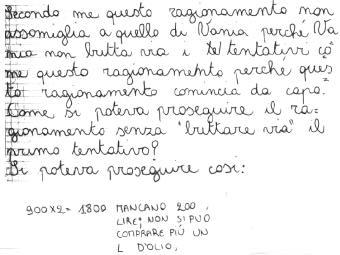 Secondo me questo ragionamento non
assomiglia a quello di Vania perché Va
nia non butta via i tentativi co
me questo ragionamento perché ques
to ragionamento comincia da capo.
Come si poteva proseguire il ra-
gionamento senza "buttare via" il
primo tentativo?
Si poteva proseguire così:
900x2= 1800 MANCANO 200
LIRE; NON SI PUÒ
COMPRARE PIÙ UN
L D'OLIO,